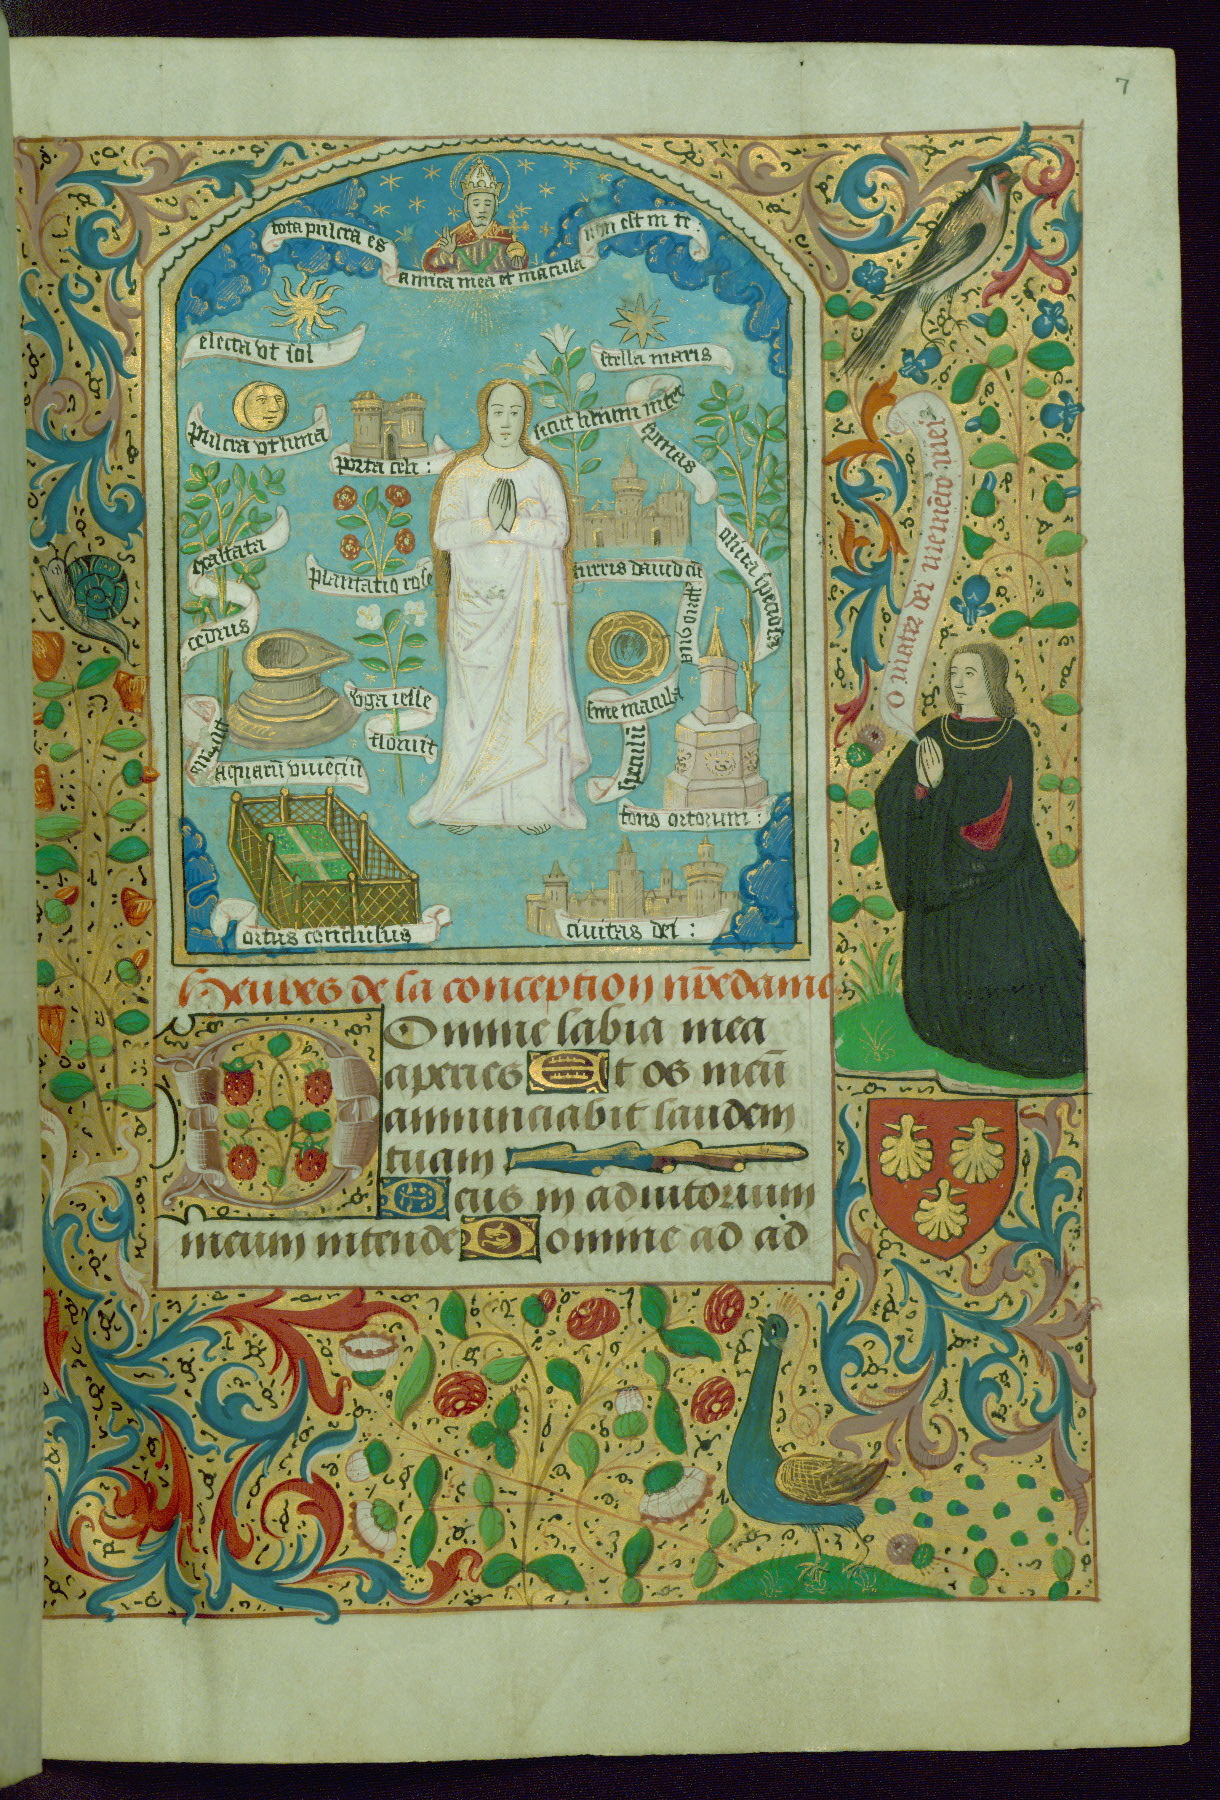 7
tota pulcra es
amica mea et macula
non est in te.
electa vt sol
stella maris
pulcra vt luna
porta celi :
sicut lilium inter
spinas
exaltata
cedrus
plantatio rose
turris dauid cū
oliua speciosa
v̄ga iesse
floruit
sine macula
speculū
aquarū viuēciū
fons ortorum :
ortus conclusus
ciuitas dei :
O mater dei memēto mei
Heures de la conception nr̄e dame
Domine labia mea
aperies Et os meū
annunciabit laudem
tuam
Deus in adiutorium
meum intende Domine ad ad